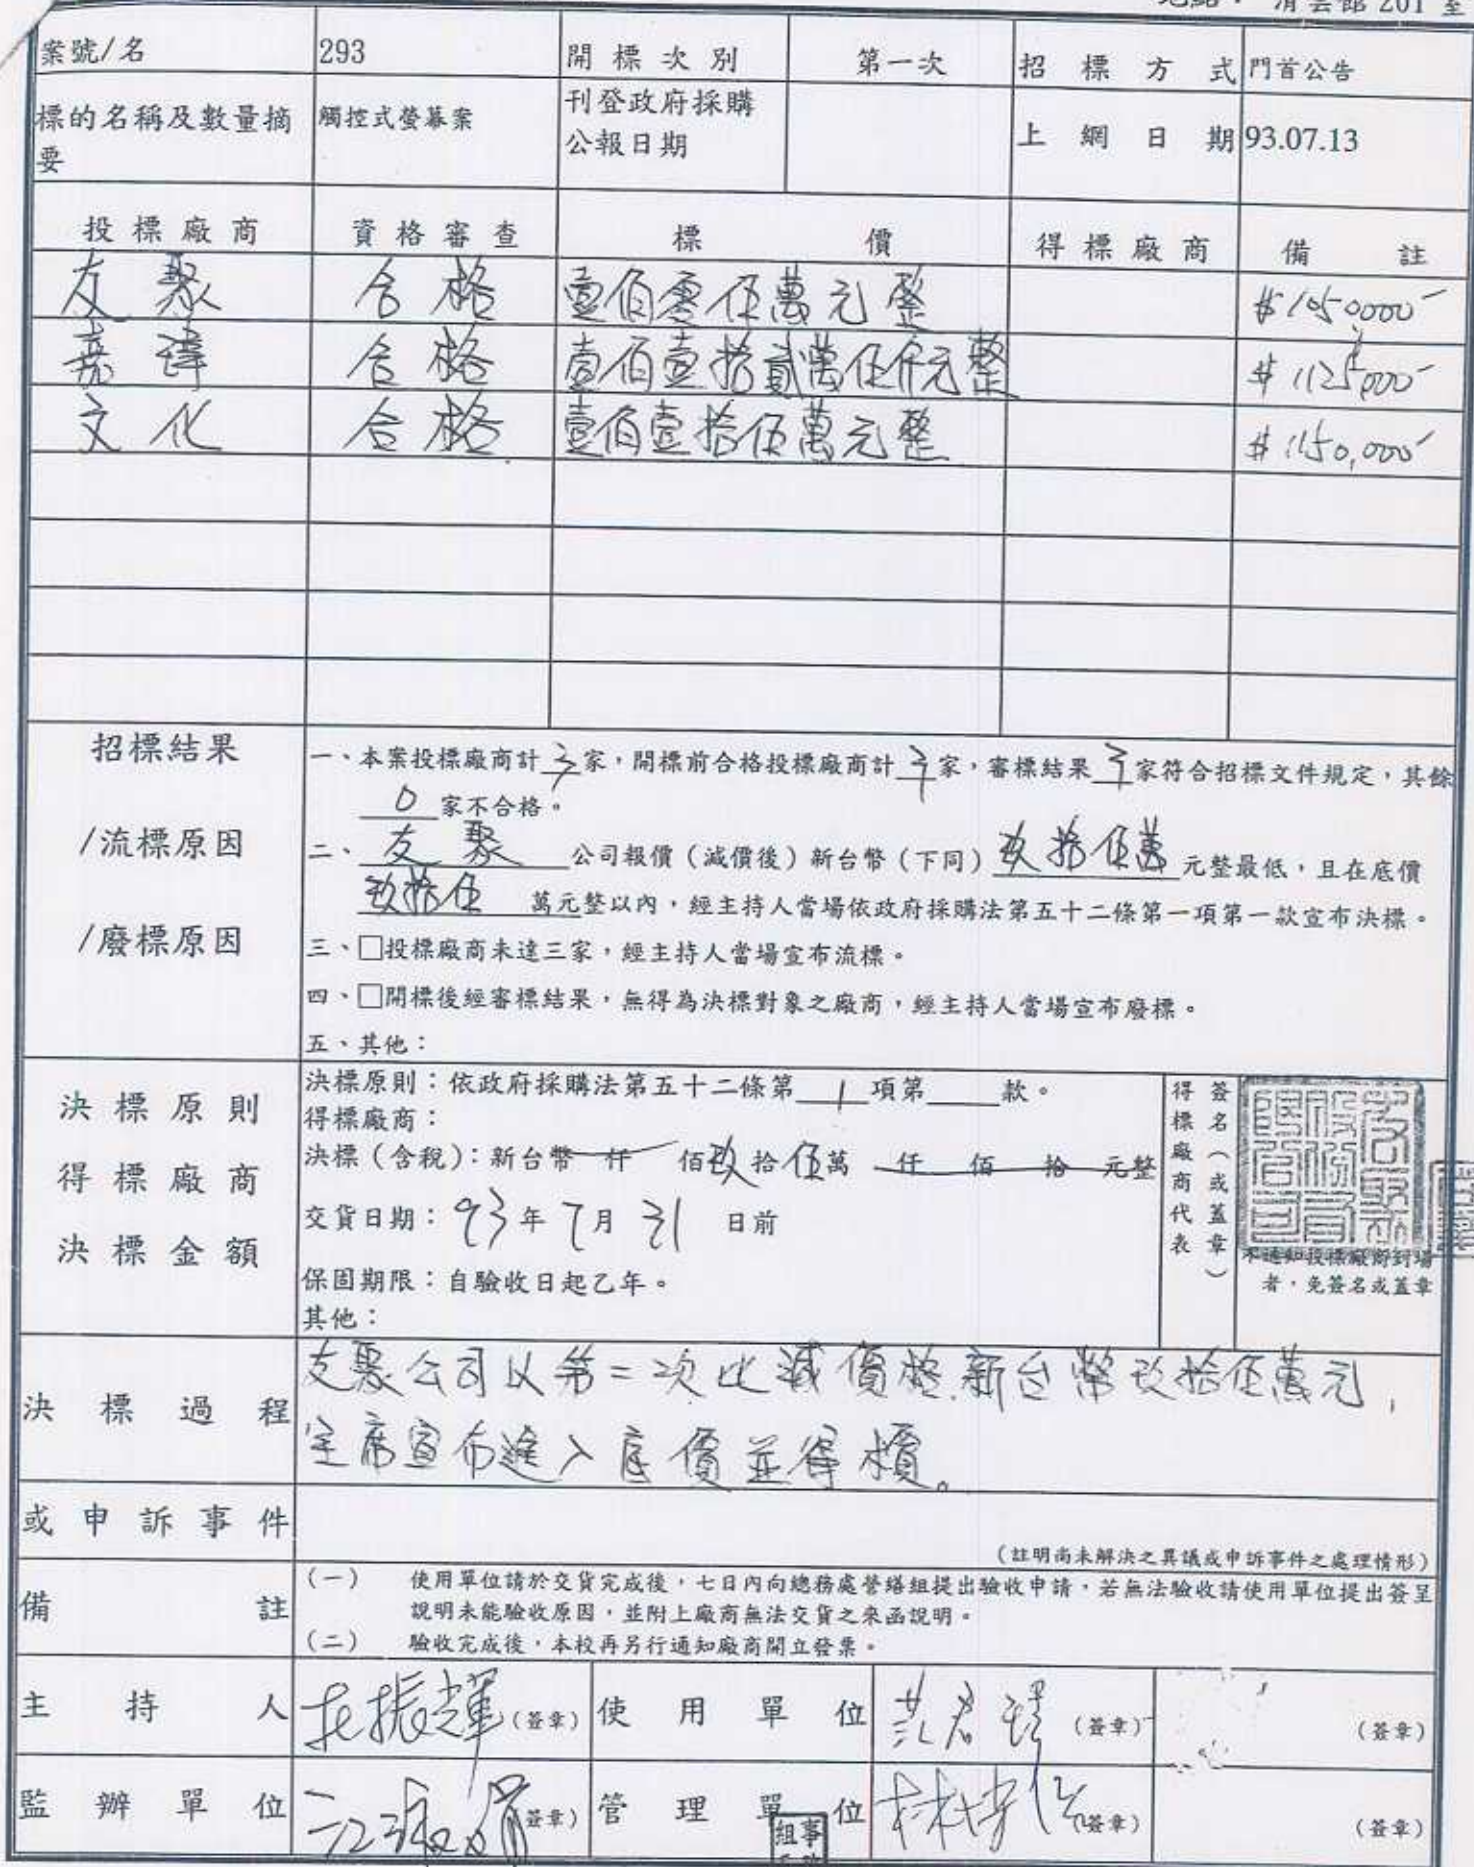 清雲館 201 室
案號/名 293 開標次別 第一次 招標方式 門首公告
標的名稱及數量摘要 觸控式螢幕案 刊登政府採購公報日期 上網日期 93.07.13
投標廠商 資格審查 標價 得標廠商 備註
友聚 合格 壹佰零伍萬元整 $1050000
嘉瑋 合格 壹佰壹拾貳萬伍仟元整 $1125,000
文化 合格 壹佰壹拾伍萬元整 $1150,000
招標結果
/流標原因
/廢標原因
一、本案投標廠商計 3 家,開標前合格投標廠商計 3 家,審標結果 3 家符合招標文件規定,其餘
0 家不合格。
二、友聚 公司報價(減價後)新台幣(下同)玖拾伍萬 元整最低,且在底價
玖拾伍 萬元整以內,經主持人當場依政府採購法第五十二條第一項第一款宣布決標。
三、□投標廠商未達三家,經主持人當場宣布流標。
四、□開標後經審標結果,無得為決標對象之廠商,經主持人當場宣布廢標。
五、其他:
決標原則
得標廠商
決標金額
決標原則:依政府採購法第五十二條第 1 項第 款。
得標廠商:
決標(含稅):新台幣 仟 佰玖拾伍萬 仟 佰 拾 元整
交貨日期:93年7月31日前
保固期限:自驗收日起乙年。
其他:
得標廠商代表
簽名(或蓋章)
未通知投標廠商到場
者,免簽名或蓋章
決標過程
友聚公司以第二次比減價格新台幣玖拾伍萬元,
主席宣布進入底價並得標。
或申訴事件
(註明尚未解決之異議或申訴事件之處理情形)
備註
(一) 使用單位請於交貨完成後,七日內向總務處營繕組提出驗收申請,若無法驗收請使用單位提出簽呈
說明未能驗收原因,並附上廠商無法交貨之來函說明。
(二) 驗收完成後,本校再另行通知廠商開立發票。
主持人 (簽章) 使用單位 (簽章) (簽章)
監辦單位 (簽章) 管理單位 (簽章) (簽章)